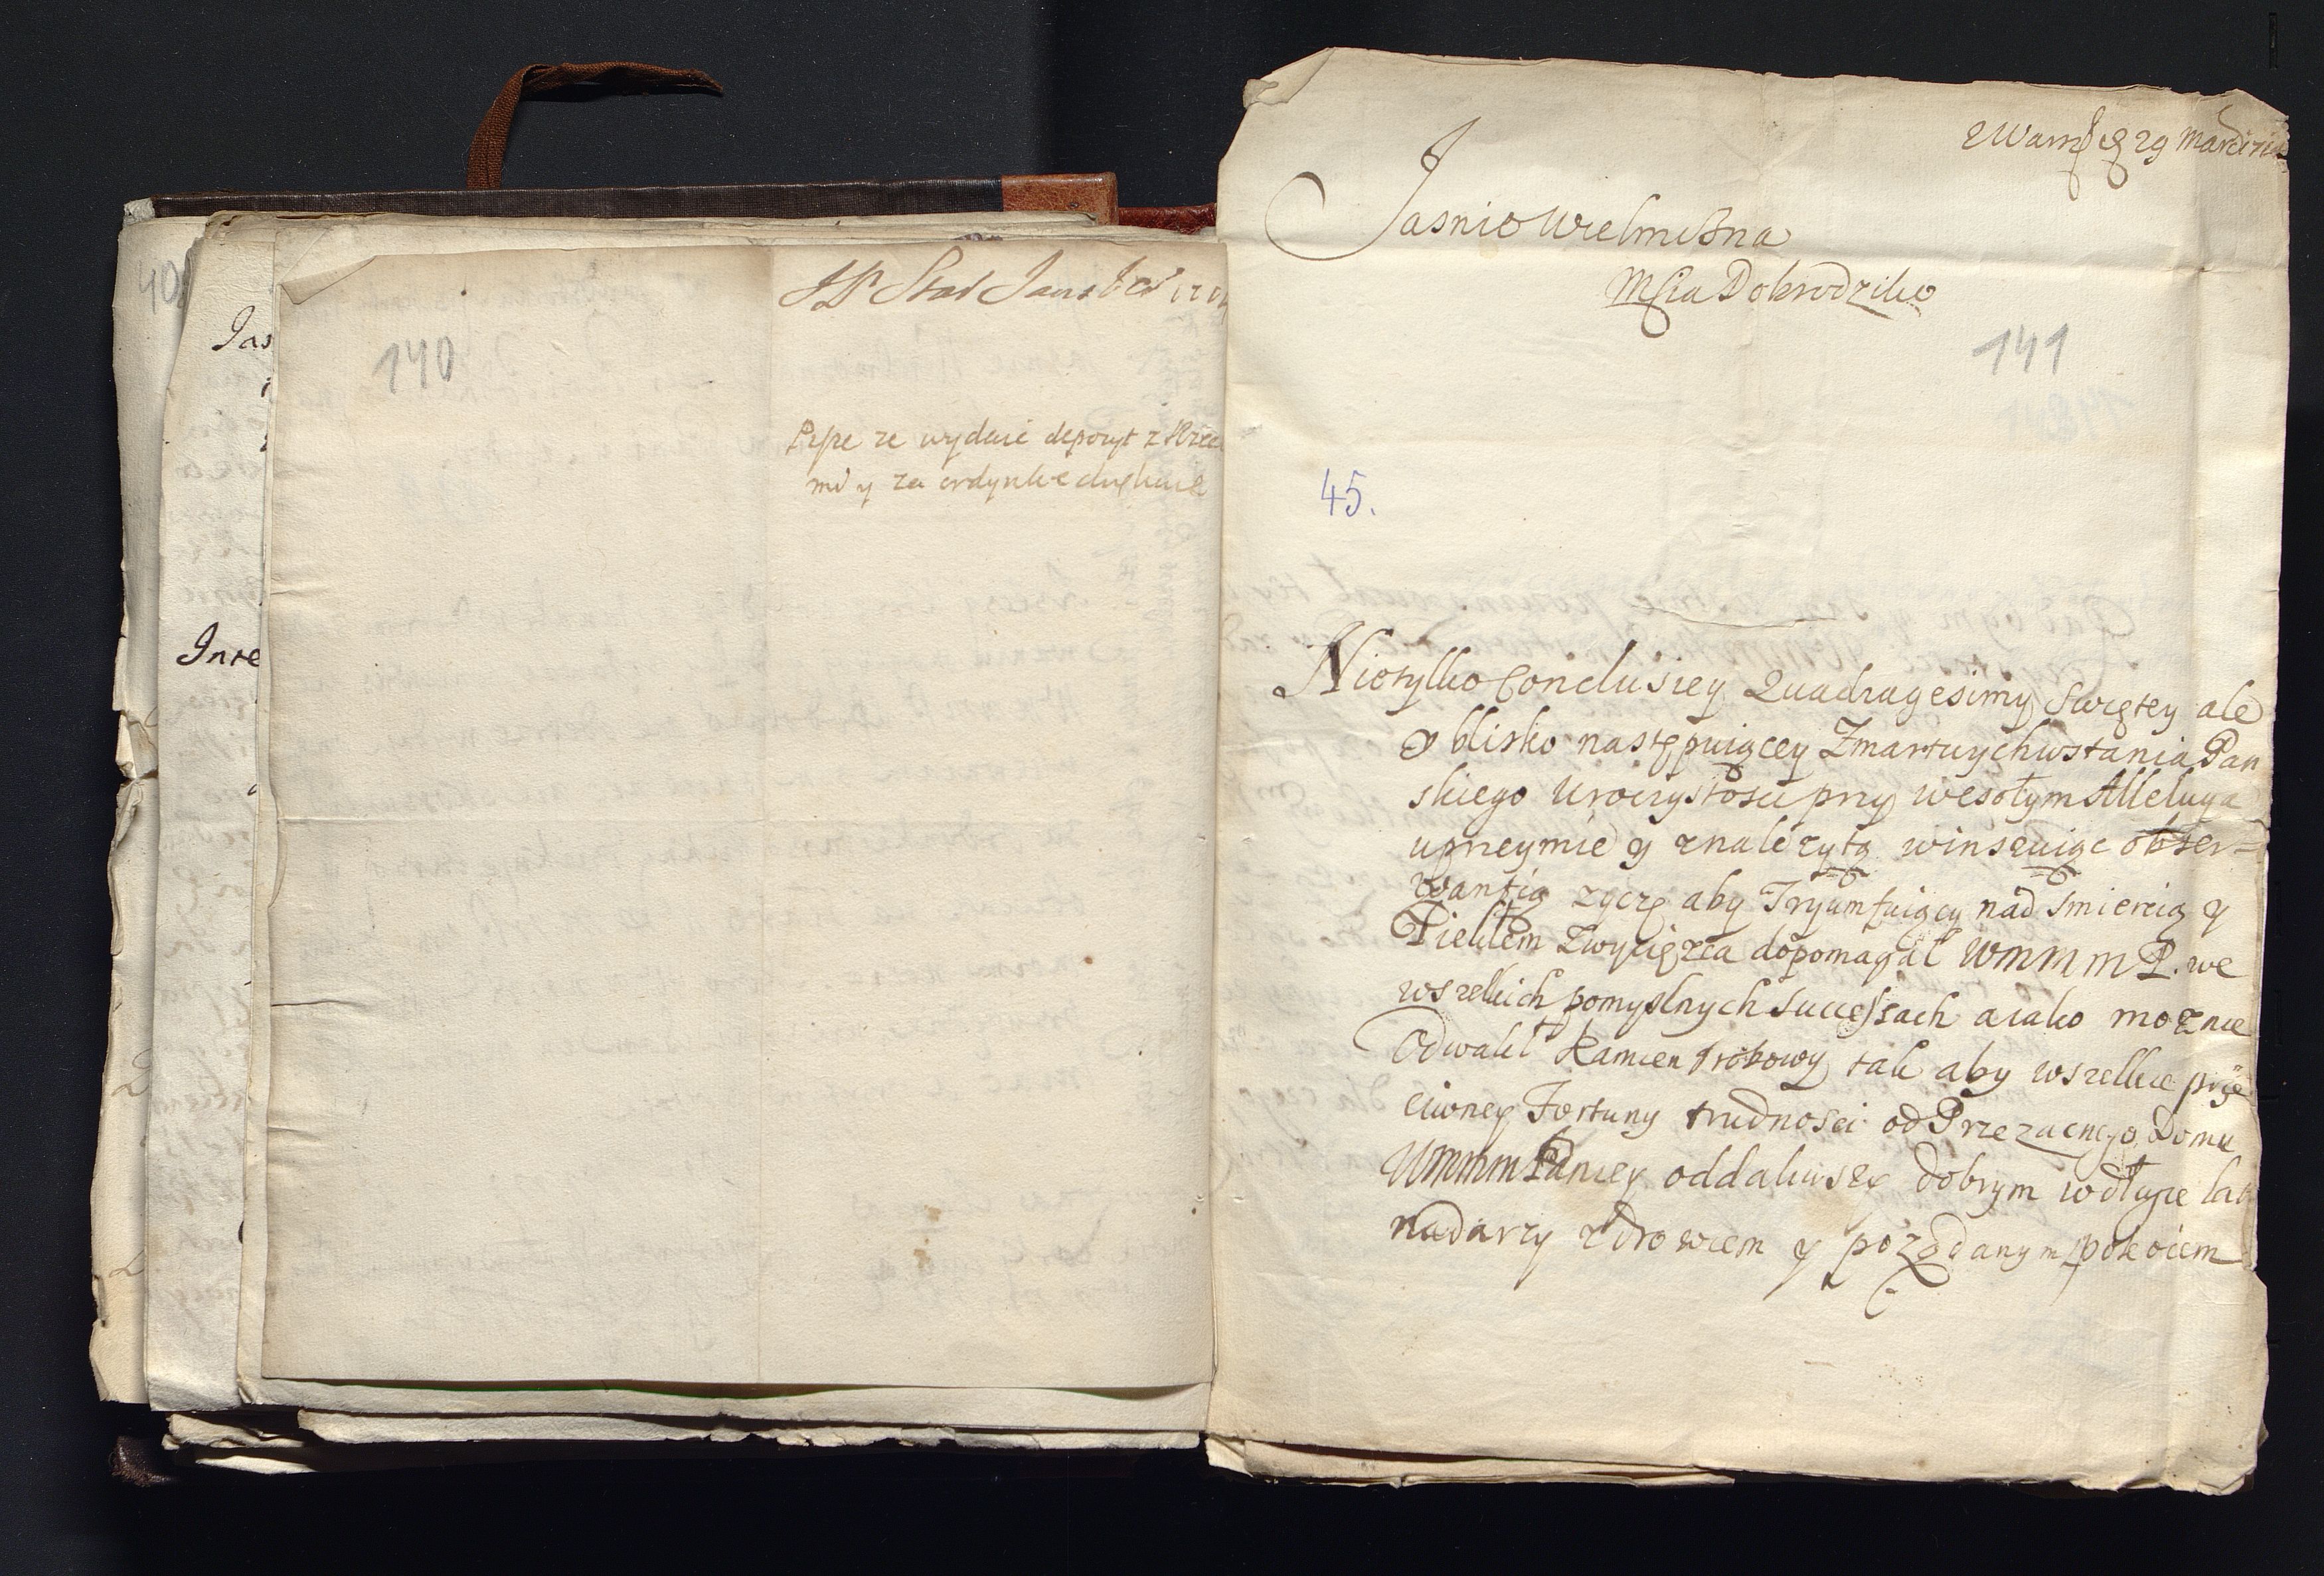 140
Pisze ze wydaie depozyt z
mi y za ordynke
Jas
Inte
z Warsz 29 Martii
Jasnie Wielmozna
Mscia Dobrodziko
141
45.
Nietylko Conclusiey Quadragesimy Swętey ale
y blisko następuiącey Zmartwychwstania Pan
skiego Uroczystosci przy wesołym Alleluya
uprzeymie y z należytą winszuiąc obser=
wantią zyczę aby Tryumfuiący nad smiercią y
Piekłem Zwycięzca dopomagał WMMMP. we
wszelkich pomyslnych Successach a iako moznie
Odwalił Kamien Grobowy tak aby wszelkie prze
ciwney Fortuny trudnosci od Przezacnego Domu
WMMM Paniey oddaliwszy dobrym w długie lat
nadarzy zdrowiem y pożądanym pokoiem